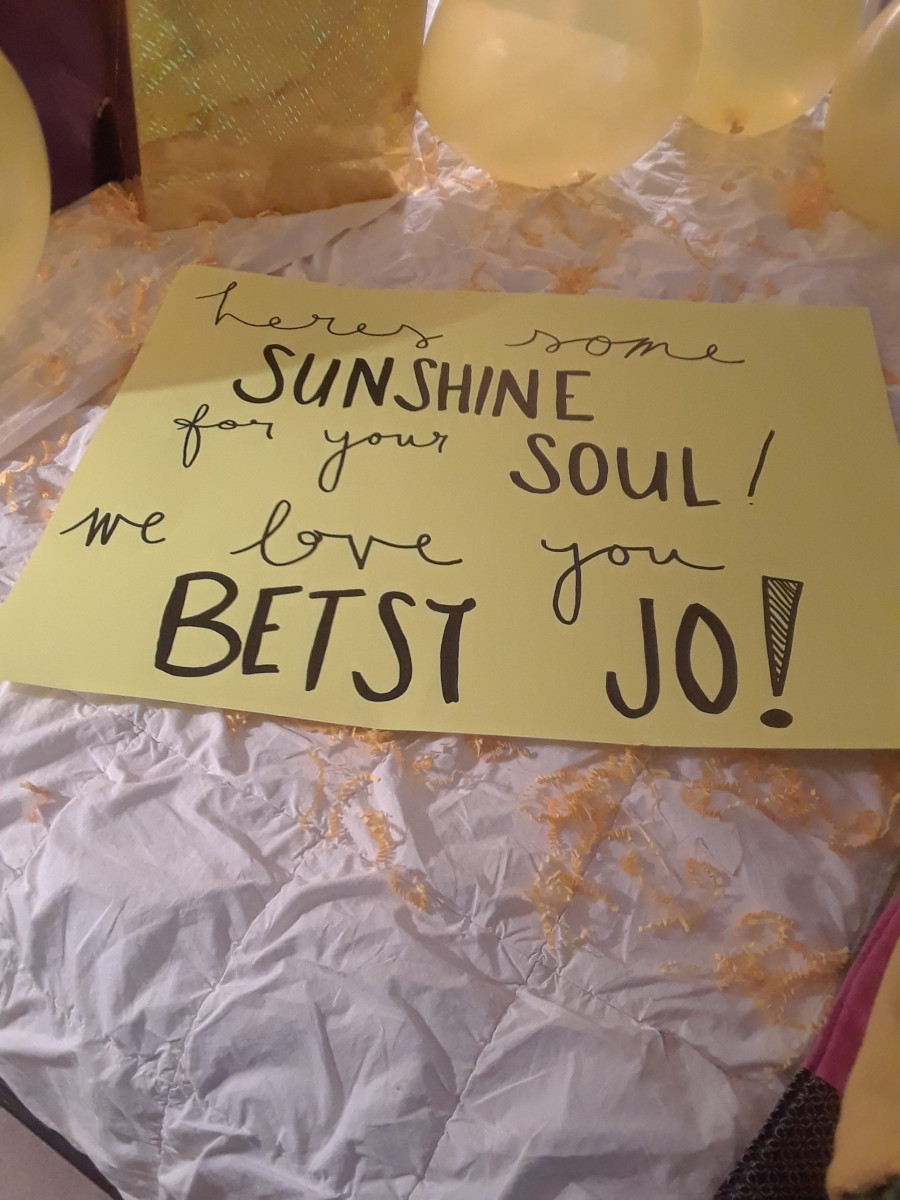 heres some
SUNSHINE
for your SOUL!
we love you
BETSY JO!